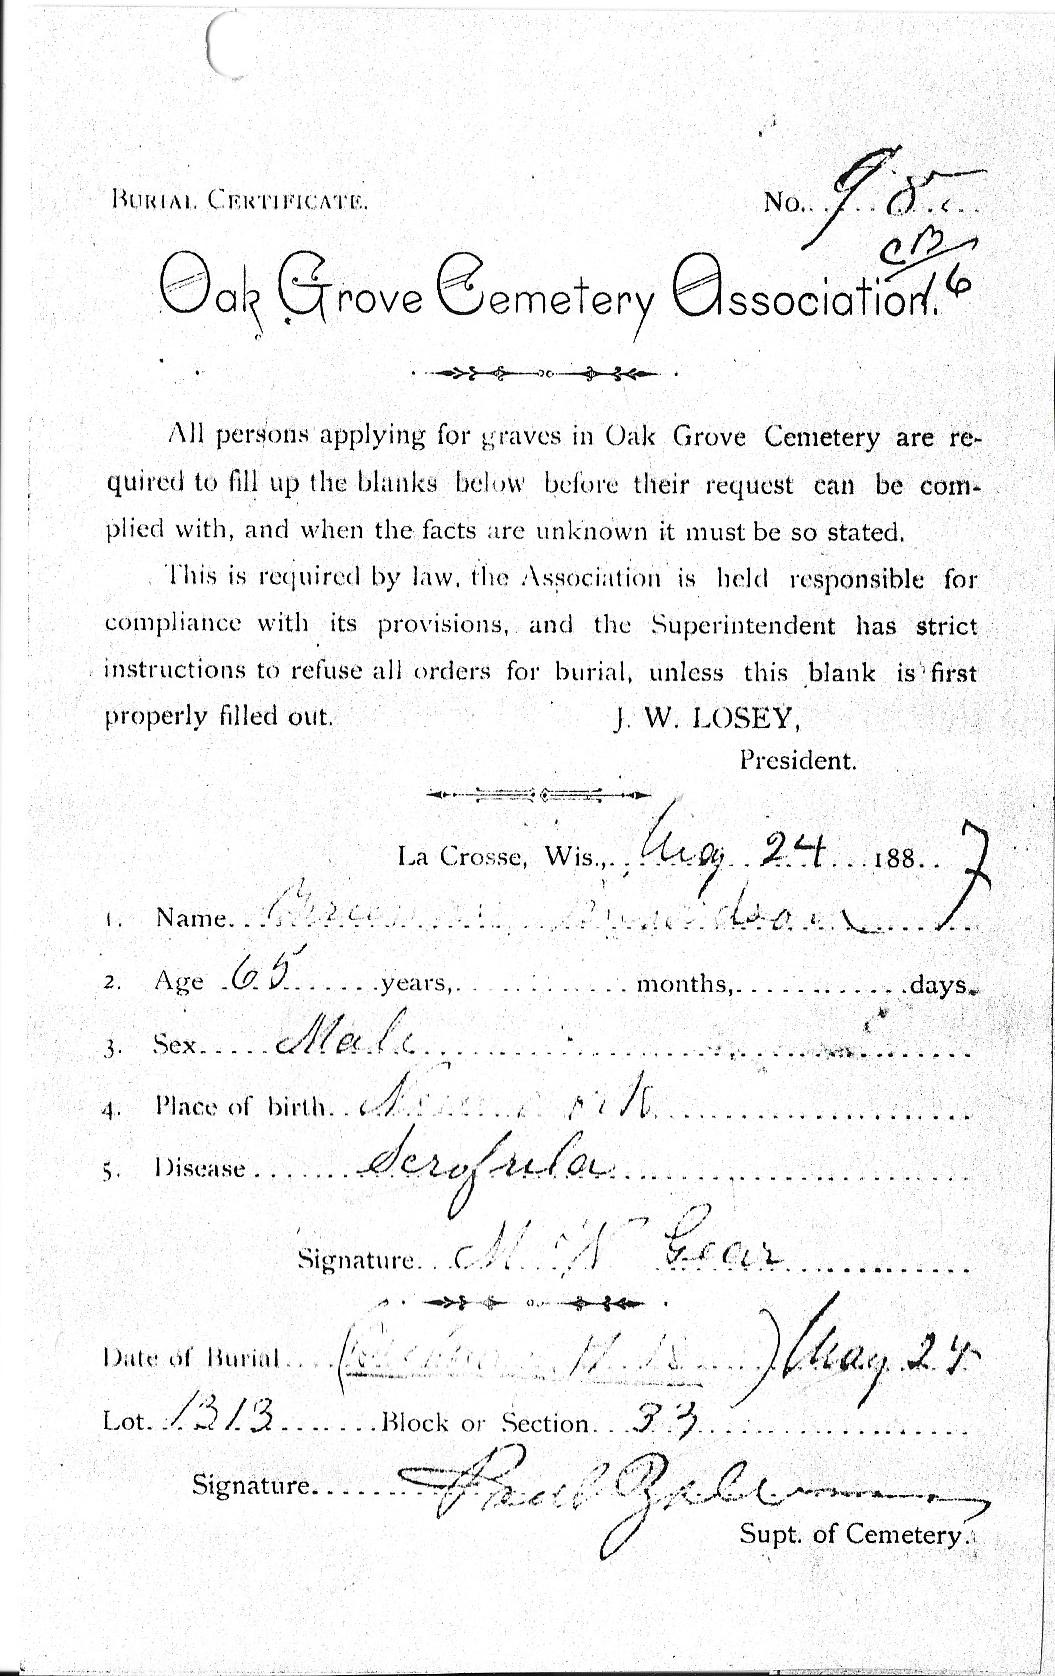 BURIAL CERTIFICATE. No. 985
CB
16
Oak Grove Cemetery Association.
All persons applying for graves in Oak Grove Cemetery are re-
quired to fill up the blanks below before their request can be com-
plied with, and when the facts are unknown it must be so stated.
This is required by law, the Association is held responsible for
compliance with its provisions, and the Superintendent has strict
instructions to refuse all orders for burial, unless this blank is first
properly filled out. J. W. LOSEY,
President.
La Crosse, Wis., May 24 1887
1. Name
2. Age 65 years, months, days.
3. Sex Male
4. Place of birth New York
5. Disease Scrofula
Signature M W Gear
Date of Burial May 24
Lot 1313 Block or Section 33
Signature Paul
Supt. of Cemetery.